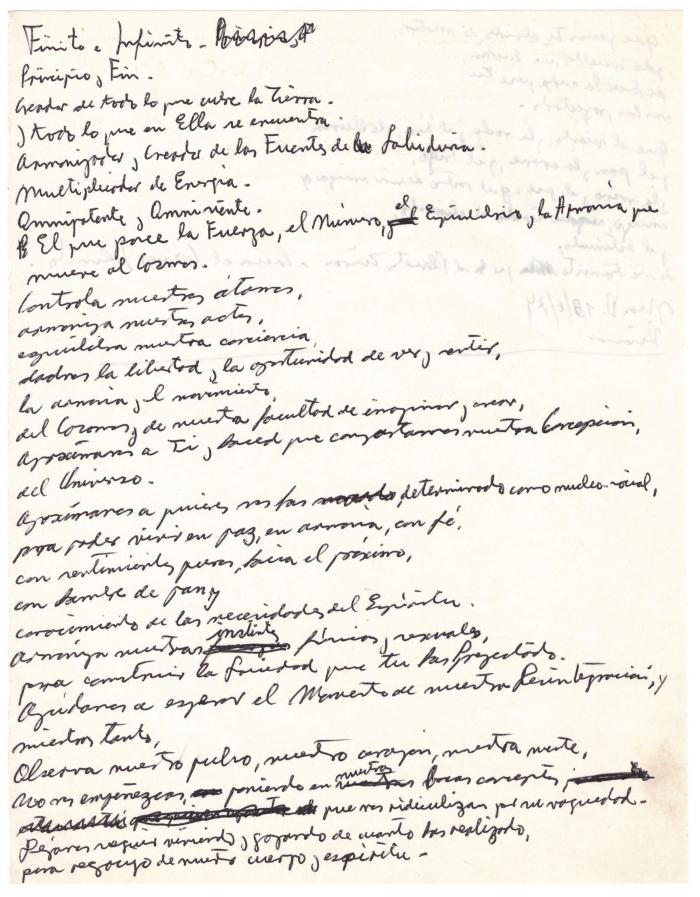 Finito e Infinito -
Principio y Fin.
Creador de todo lo que cubre la Tierra.
y todo lo que en Ella se encuentra.
Armonizador y Creador de las Fuentes de Sabiduria.
Multiplicador de Energia.
Omnipotente y Omnividente.
El que posee la Fuerza, el Número, el Equilibrio y la Armonía que
mueve al Cosmos.
Controla nuestros átomos,
armoniza nuestros actos,
equilibra nuestra conciencia,
dadnos la libertad y la oportunidad de ver y sentir,
la armonia y el movimiento,
del Cosmos, y de nuestra facultad de imaginar y crear,
Aproximanos a Ti y haced que compartamos nuestra Concepcion,
del Universo.
Aproximanos a quienes nos has determinado como nucleo social,
para poder vivir en paz, en armonia, con fé,
con sentimientos puros, hacia el próximo,
con hambre de pan y
conocimiento de las necesidades del Espíritu.
Armoniza nuestros instintos físicos y sexuales,
para construir la Sociedad que tu has Proyectado.
Ayúdanos a esperar el Momento de nuestra Reintegración, y
mientras tanto,
Observa nuestro pulso, nuestro corazón, nuestra mente,
No nos empeñezcas, poniendo en nuestras bocas conceptos,
que nos ridiculizan por su vaguedad.
Dejanos seguir viviendo y gozando de cuanto has realizado,
para regocijo de nuestro cuerpo y espíritu -